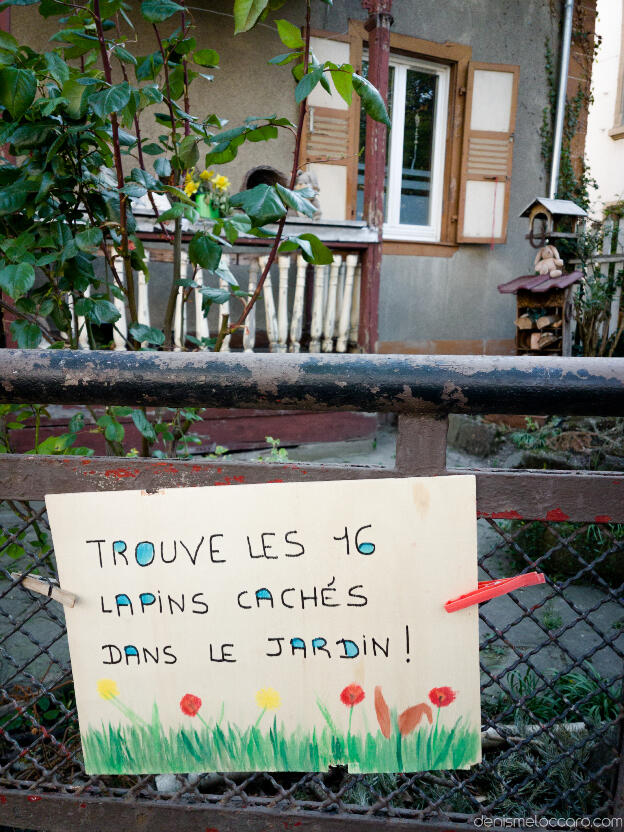 TROUVE LES 16
LAPINS CACHÉS
DANS LE JARDIN !
denismeloccaro.com